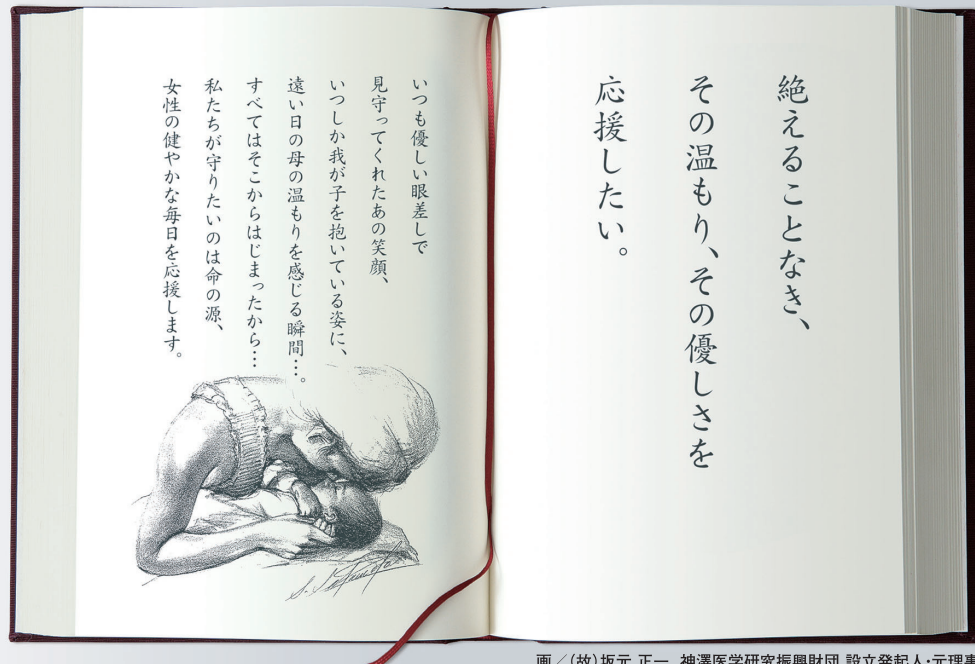 絶えることなき、
その温もり、その優しさを
応援したい。
いつも優しい眼差しで
見守ってくれたあの笑顔、
いつしか我が子を抱いている姿に、
遠い日の母の温もりを感じる瞬間…。
すべてはそこからはじまったから…
私たちが守りたいのは命の源、
女性の健やかな毎日を応援します。
画/(故)坂元 正一 神澤医学研究振興財団 設立発起人・元理事